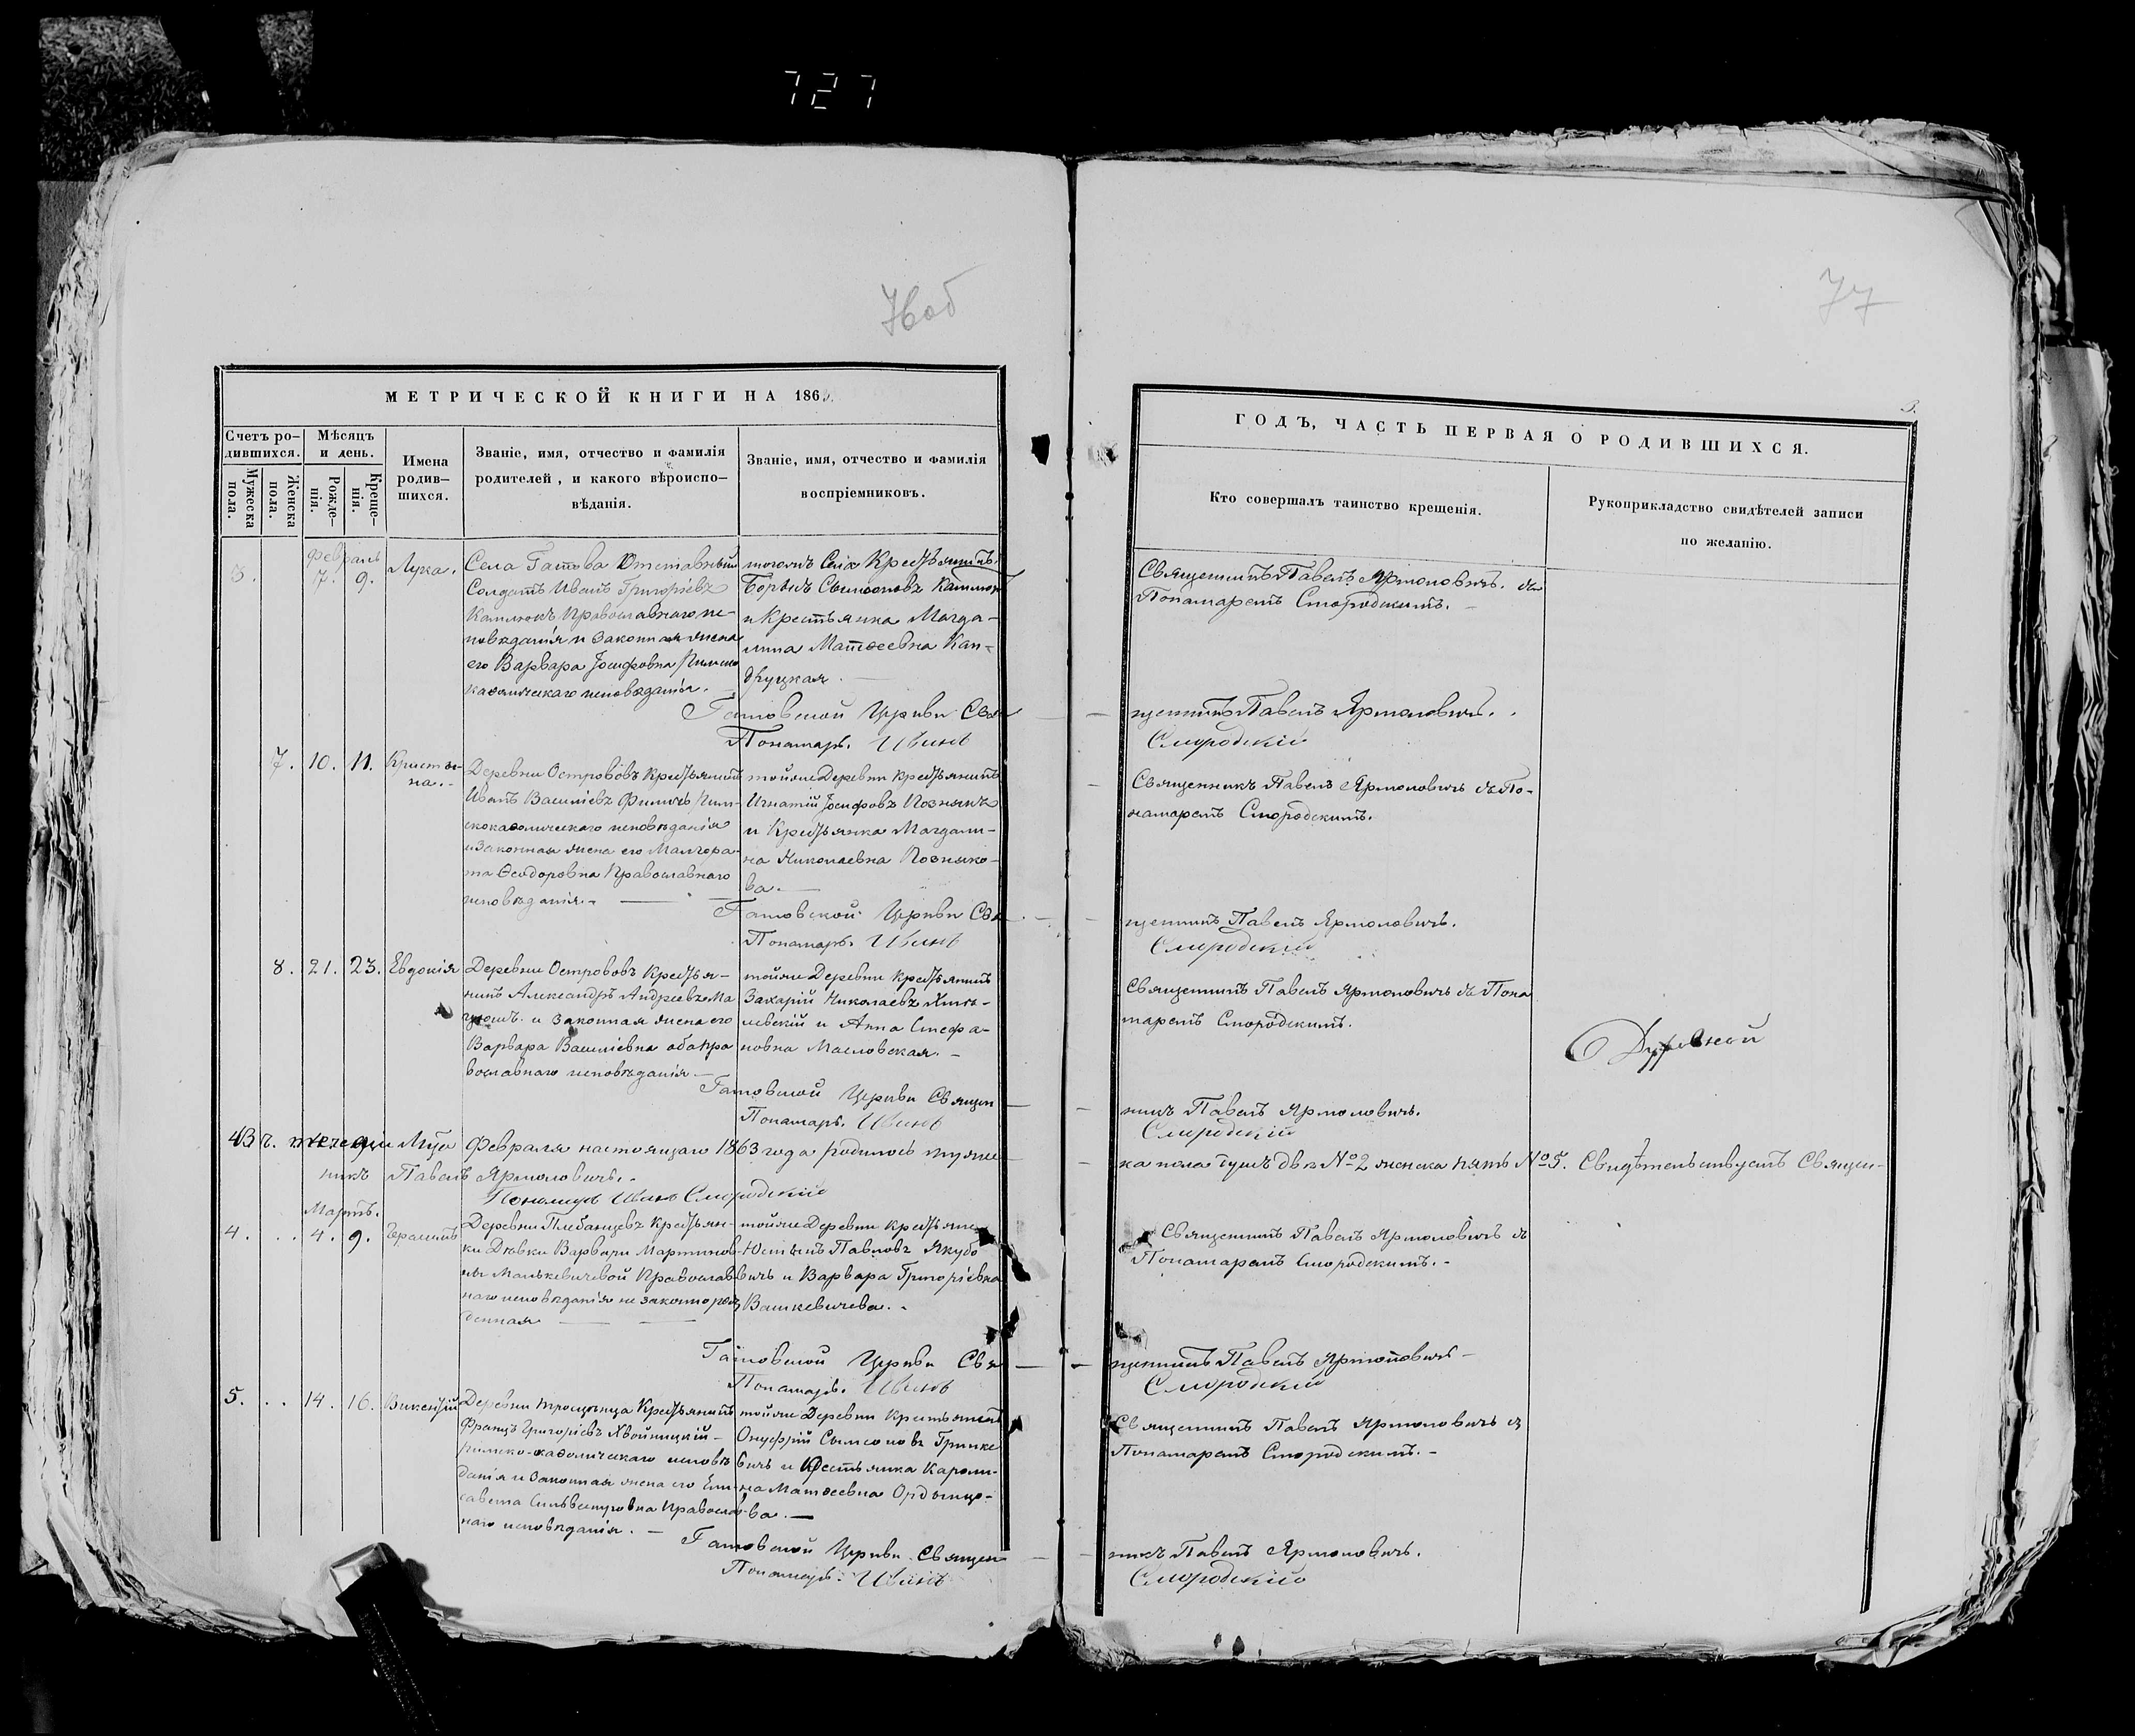 727
76об
77
3.
МЕТРИЧЕСКОЙ КНИГИ НА 186
Счетъ ро-
дившихся.
Мужеска
пола.
Женска
пола.
Мѣсяцъ
и день.
Рожде-
нія.
Креще-
нія.
Имена
родив-
шихся.
Званіе, имя, отчество и фамилія
родителей, и какого вѣроиспо-
вѣданія.
Званіе, имя, отчество и фамилія
воспріемниковъ.
ГОДЪ, ЧАСТЬ ПЕРВАЯ О РОДИВШИХСЯ.
Кто совершалъ таинство крещенія.
Рукоприкладство свидѣтелей записи
по желанію.
Февраль
3. 7. 9. Лука.
Села Гатова Отставный
Солдатъ Иванъ Григоріевъ
Православнаго ис-
повѣданія и Законная жена
его Варвара Іосифовна Римско
каѳолическаго исповѣданія.
тогожъ Села Крестьянинъ
и Крестьянка Магда-
лина Матѳеевна Кан-
друцкая.
Священникъ Павелъ Ярмоловичъ. съ
Пономаремъ Смородскимъ.
Гатовской Церкви Свя
щенникъ Павелъ Ярмоловичъ.
Пономарь. Иванъ
Смородскій
7. 10. 11. Кристи-
на.
Деревни Острововъ Крестьянинъ
Иванъ Василіевъ Рим-
скокаѳолическаго исповѣданія
и Законная жена его Малгора-
та Ѳеодоровна Православнаго
исповѣданія.
тойже Деревни Крестьянинъ
Игнатій Іосифовъ Познякъ
и Крестьянка Магдали-
на Николаевна Позняко-
ва.
Священникъ Павелъ Ярмоловичъ съ По-
номаремъ Смородскимъ.
Гатовской Церкви Свя
щенникъ Павелъ Ярмоловичъ.
Пономарь. Иванъ
Смородскій
8. 21. 23. Евдокія
Деревни Острововъ Крестья-
нинъ Александръ Андреевъ Ма
и Законная жена его
Варвара Василіевна оба Пра
вославнаго исповѣданія
тойже Деревни Крестьянинъ
Захарій Николаевъ
левскій и Анна Стефа-
новна Масловская.
Священникъ Павелъ Ярмоловичъ съ Поно
маремъ Смородскимъ.
Гатовской Церкви Священ
никъ Павелъ Ярмоловичъ.
Пономарь. Иванъ
Смородскій
Въ теченіи Мца Февраля настоящаго 1863 года родилось муже
ка пола душъ двѣ №2 женска пять №5. Свидѣтельствуетъ Священ-
никъ Павелъ Ярмоловичъ.
Пономарь Иванъ Смородскій
Мартъ.
4. . . 4. 9. Герасимъ
Деревни Плебанцевъ Крестьян-
ки Дѣвки Варвары Мартинов-
ны Малькевичевой Православ
наго исповѣданія не законорож
денная
тойже Деревни Крестьянинъ
Юстынъ Павловъ Якубо
вичъ и Варвара Григоріевна
Вашкевичева.
Священникъ Павелъ Ярмоловичъ съ
Пономаремъ Смородскимъ.
Гатовской Церкви Свя
щенникъ Павелъ Ярмоловичъ
Пономарь. Иванъ
Смородскій
5. . . 14. 16. Викентій
Деревни Тростенца Крестьянинъ
Францъ Григоріевъ Хвойницкій
римско-каѳолическаго исповѣ
данія и Законная жена его Ели-
савета Сильвестровна Православ
наго исповѣданія.
тойже Деревни Крестьянинъ
Онуфрій Сымоновъ Гринке
вичъ и Крестьянка Кароли-
на Матѳеевна Ордынцо-
ва.
Священникъ Павелъ Ярмоловичъ съ
Пономаремъ Смородскимъ.
Гатовской Церкви Священ
никъ Павелъ Ярмоловичъ.
Пономарь. Иванъ
Смородскій